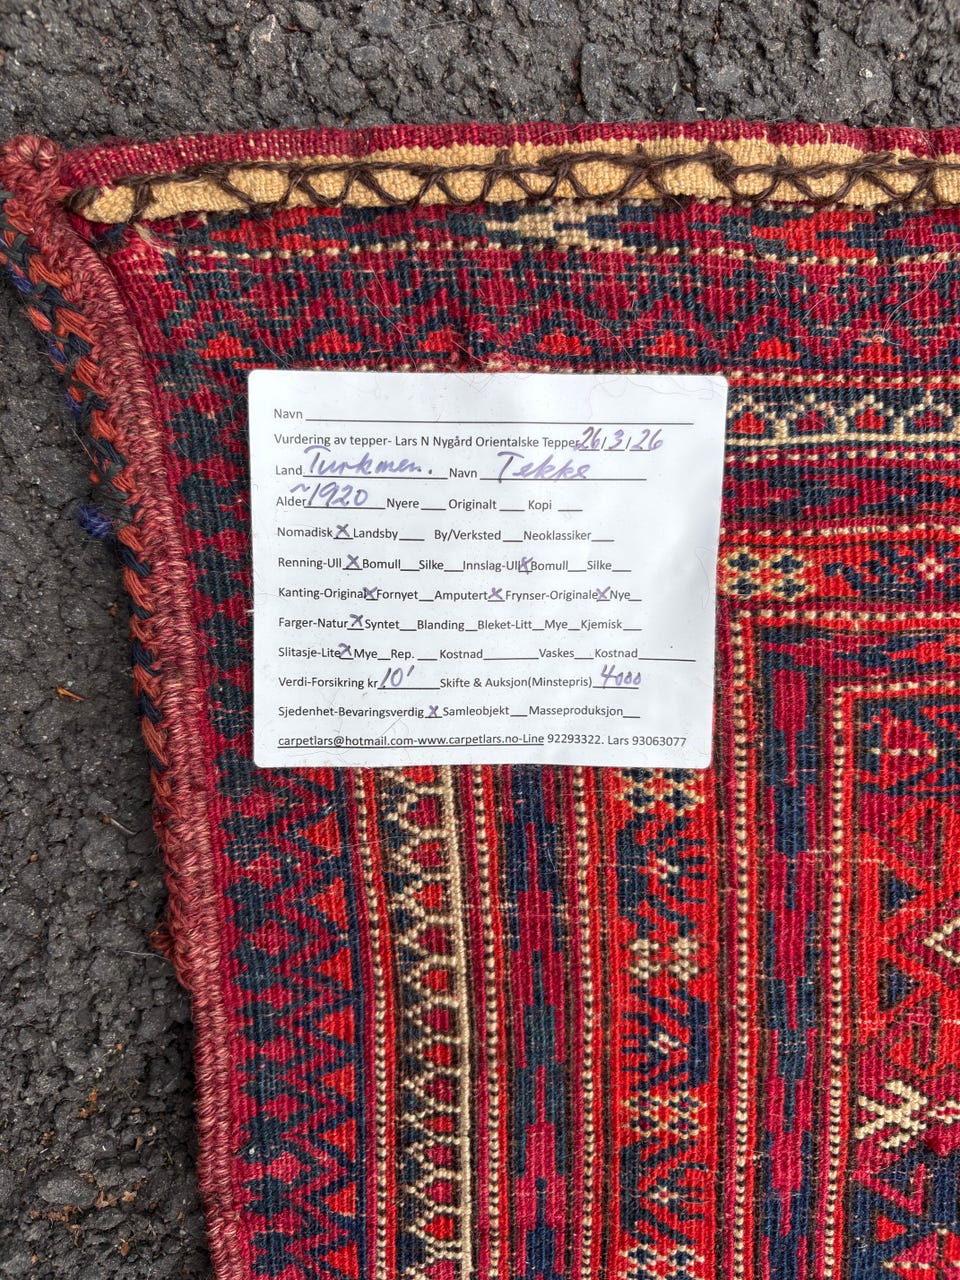 Navn
Vurdering av tepper- Lars N Nygård Orientalske Tepper 26/3/26
Land Turkmen. Navn Tekke
Alder ~1920 Nyere Originalt Kopi
Nomadisk X Landsby By/Verksted Neoklassiker
Renning-Ull X Bomull Silke Innslag-Ull X Bomull Silke
Kanting-Original X Fornyet Amputert X Frynser-Originale X Nye
Farger-Natur X Syntet Blanding Bleket-Litt Mye Kjemisk
Slitasje-Lite X Mye Rep. Kostnad Vaskes Kostnad
Verdi-Forsikring kr 10' Skifte & Auksjon(Minstepris) 4000
Sjedenhet-Bevaringsverdig X Samleobjekt Masseproduksjon
carpetlars@hotmail.com-www.carpetlars.no-Line 92293322. Lars 93063077